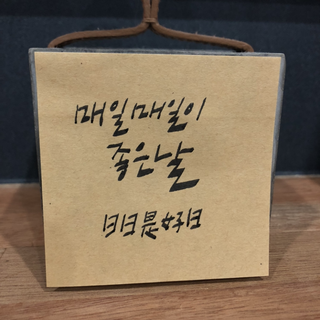 매일매일이
좋은날
日日是好日